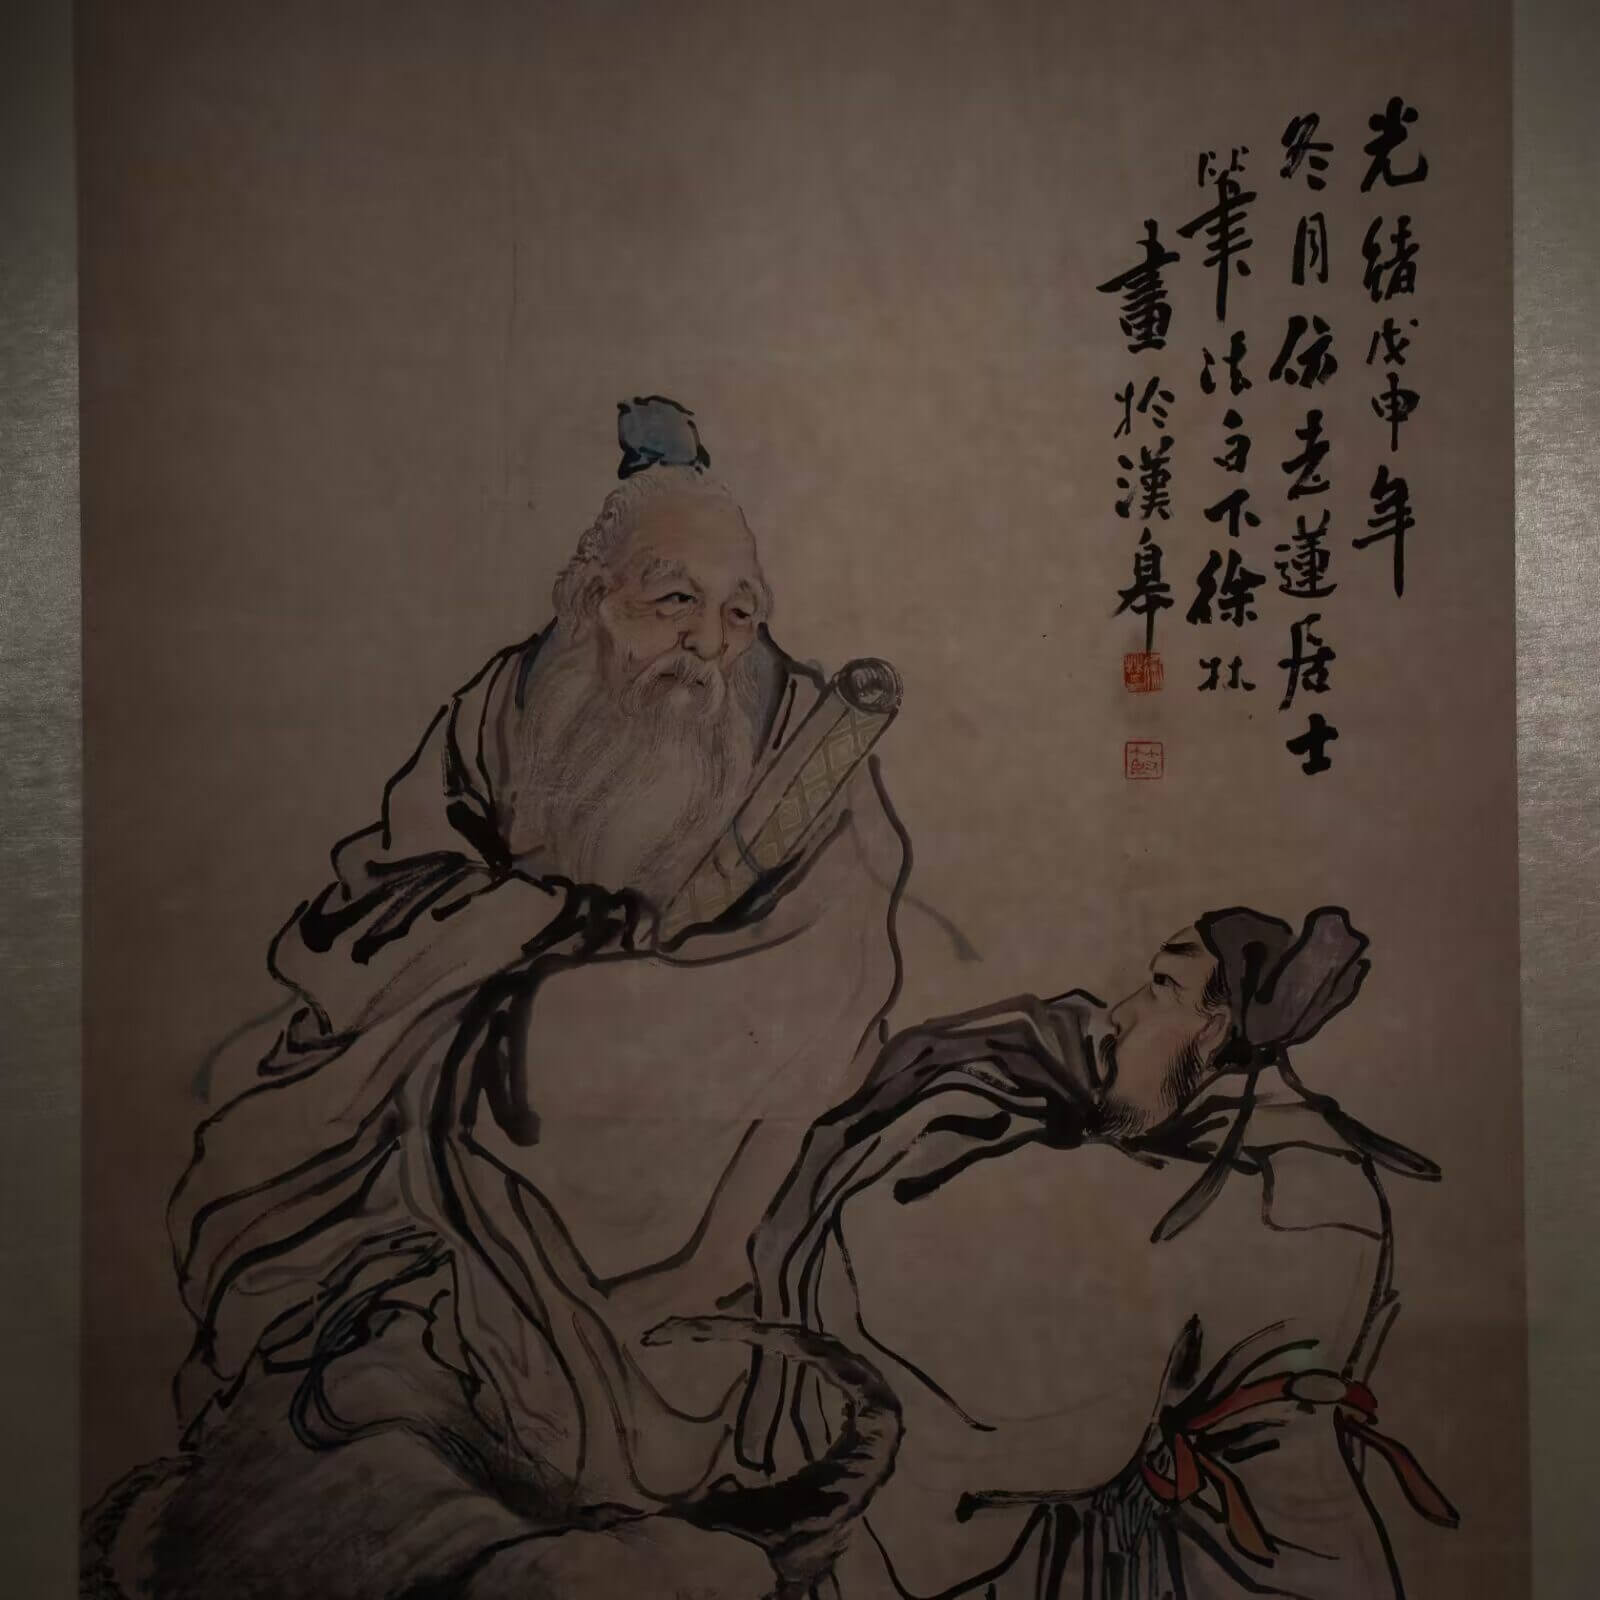 光緒戊申年
冬月仿老蓮居士
筆法白下徐林
畫於漢皋